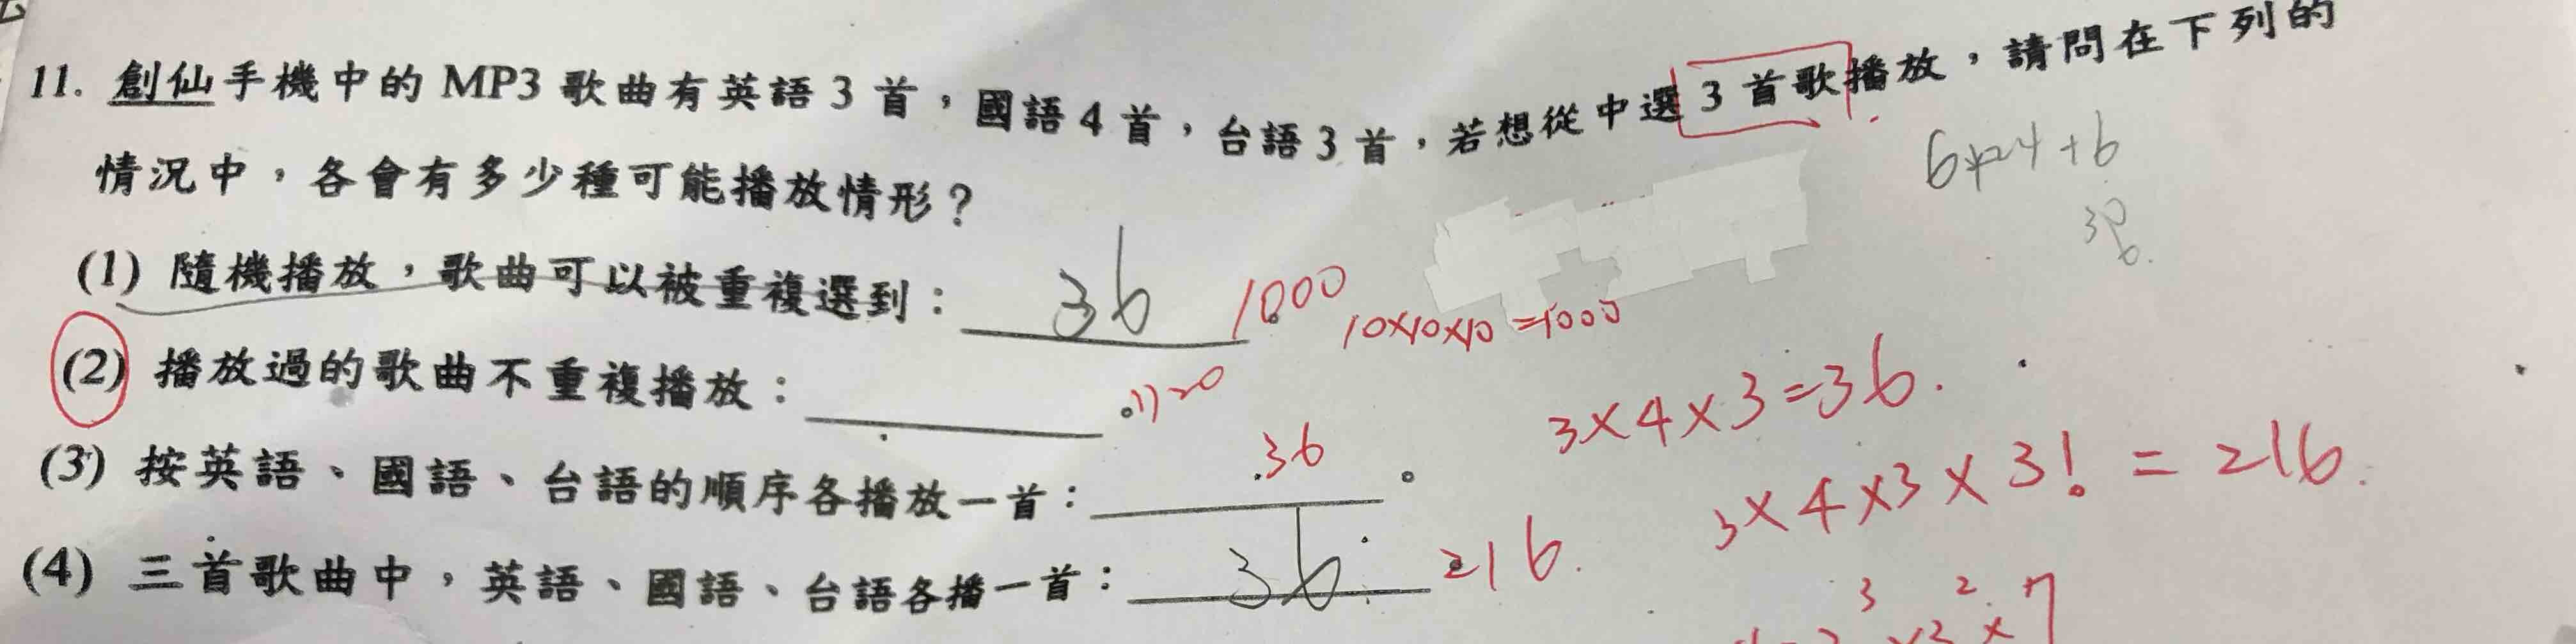 11. 創仙手機中的 MP3 歌曲有英語 3 首，國語 4 首，台語 3 首，若想從中選 3 首歌播放，請問在下列的
情況中，各會有多少種可能播放情形？
6×4+6
36
(1) 隨機播放，歌曲可以被重複選到：36。1000
10×10×10=1000
(2) 播放過的歌曲不重複播放：。720
3×4×3=36.
(3) 按英語、國語、台語的順序各播放一首：36。
3×4×3×3! = 216.
(4) 三首歌曲中，英語、國語、台語各播一首：36。216.